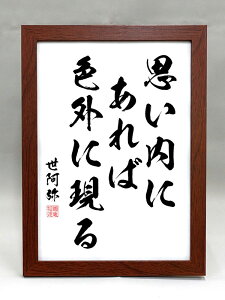 思い内に
あれば
色外に現る
世阿弥